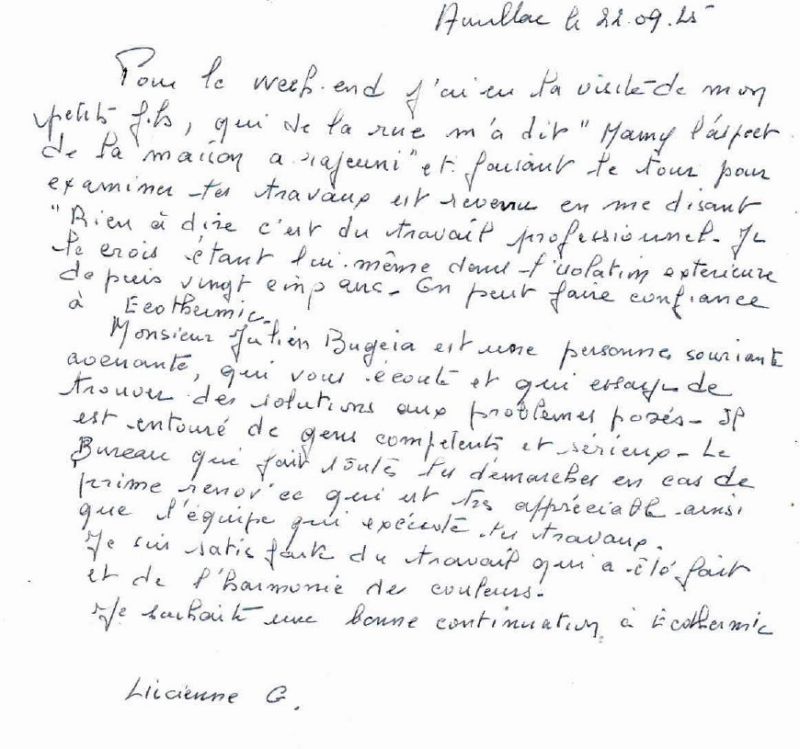 Aurillac le 22.09.25
Pour le week-end j'ai eu la visite de mon
petit fils, qui de la rue m'a dit "Mamy l'aspect
de la maison a rajeuni" et faisant le tour pour
examiner les travaux est revenu en me disant
"Rien à dire c'est du travail professionnel. Je
le crois étant lui-même dans l'isolation extérieure
depuis vingt cinq ans. On peut faire confiance
à Ecothermic.
Monsieur Julien Bugeia est une personne souriante
avenante, qui vous écoute et qui essaye de
trouver des solutions aux problèmes posés. Il
est entouré de gens compétents et sérieux. Le
Bureau qui fait toutes les démarches en cas de
prime renov' ec qui est très appréciable ainsi
que l'équipe qui exécute les travaux.
Je suis satisfaite du travail qui a été fait
et de l'harmonie des couleurs.
Je souhaite une bonne continuation à Ecothermic
Lucienne G.